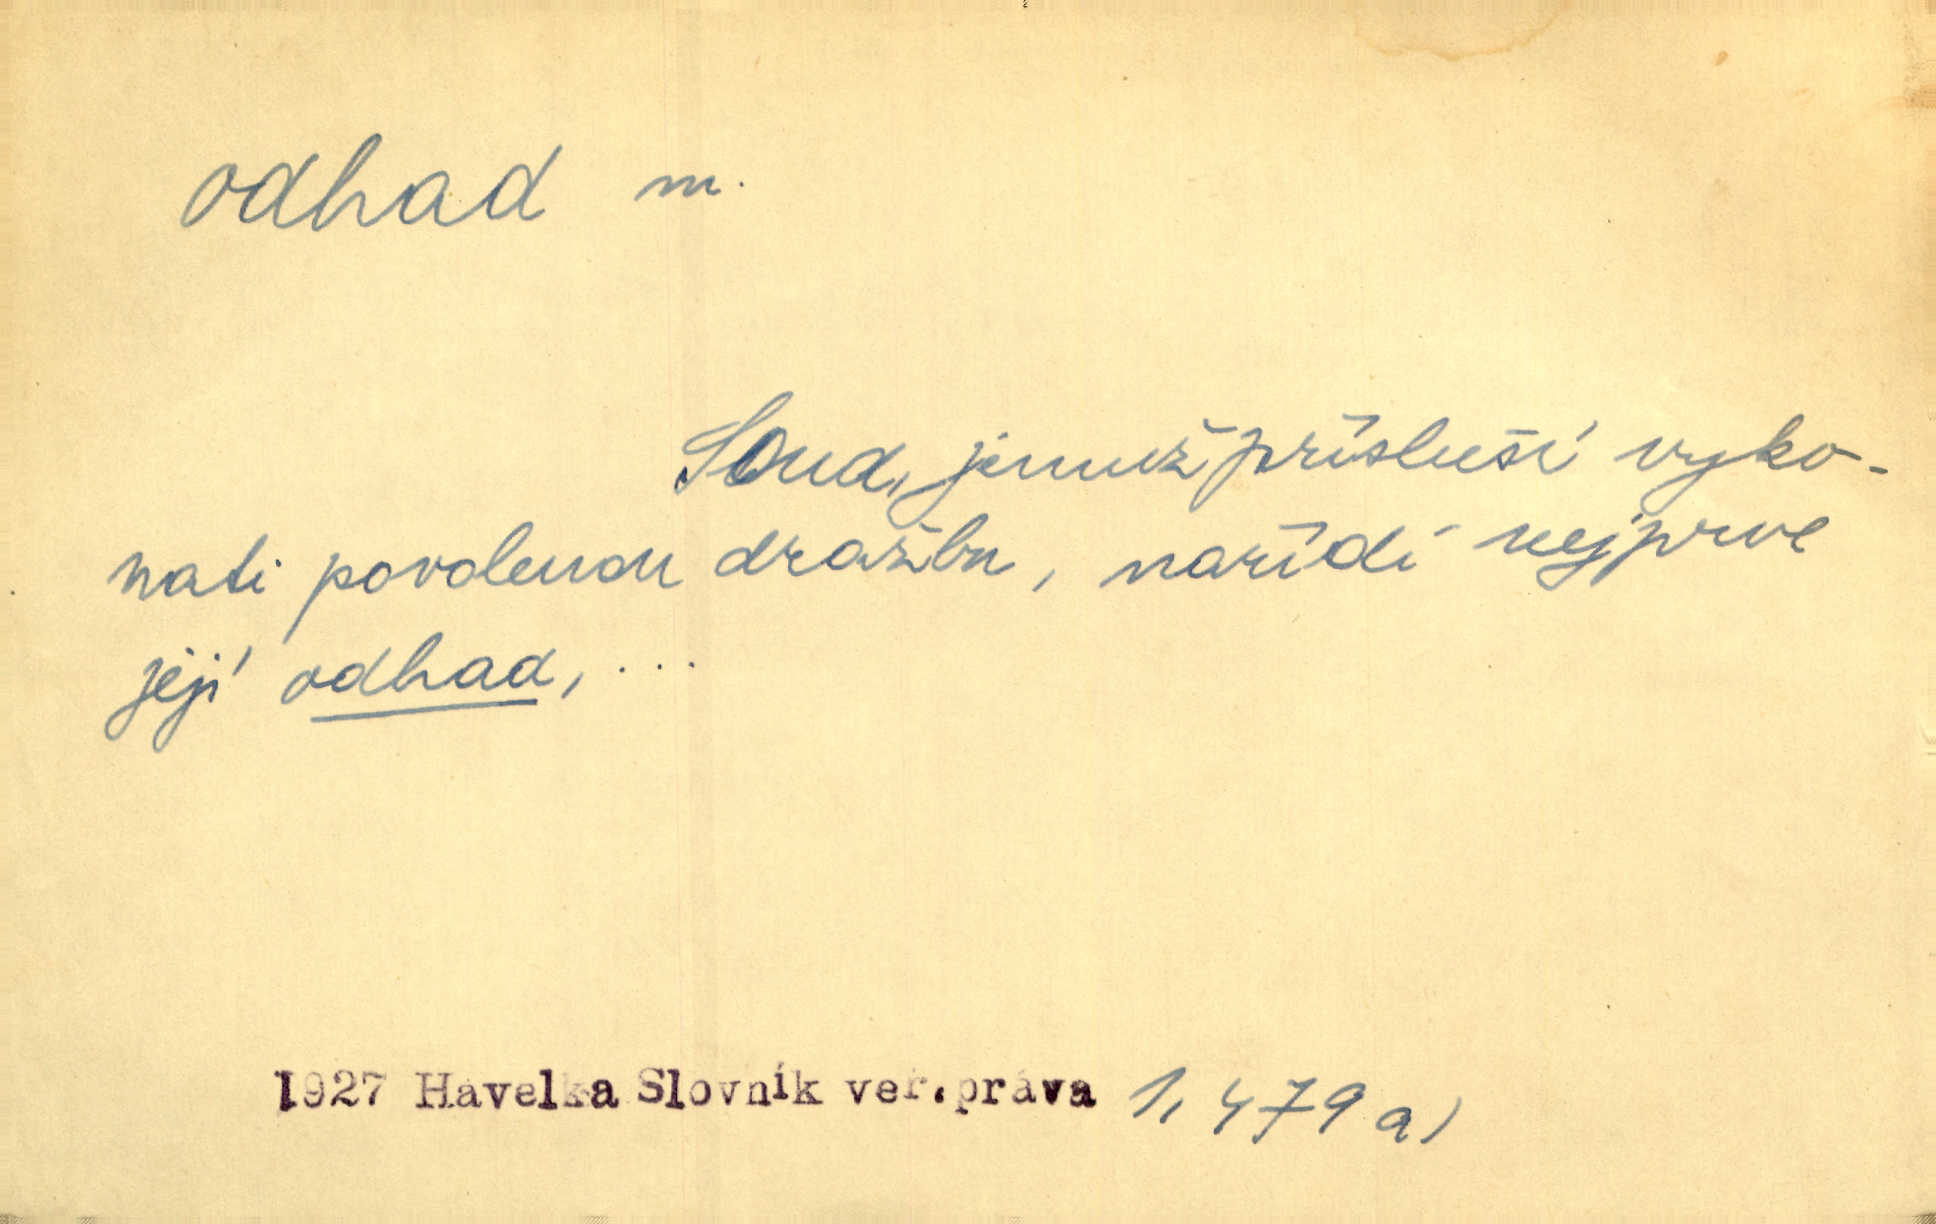 odhad m.
Soud, jemuž přísluší vyko-
nati povolenou dražbu, nařídí nejprve
její odhad, ...
1927 Havelka Slovník veř. práva 1, 479 a)